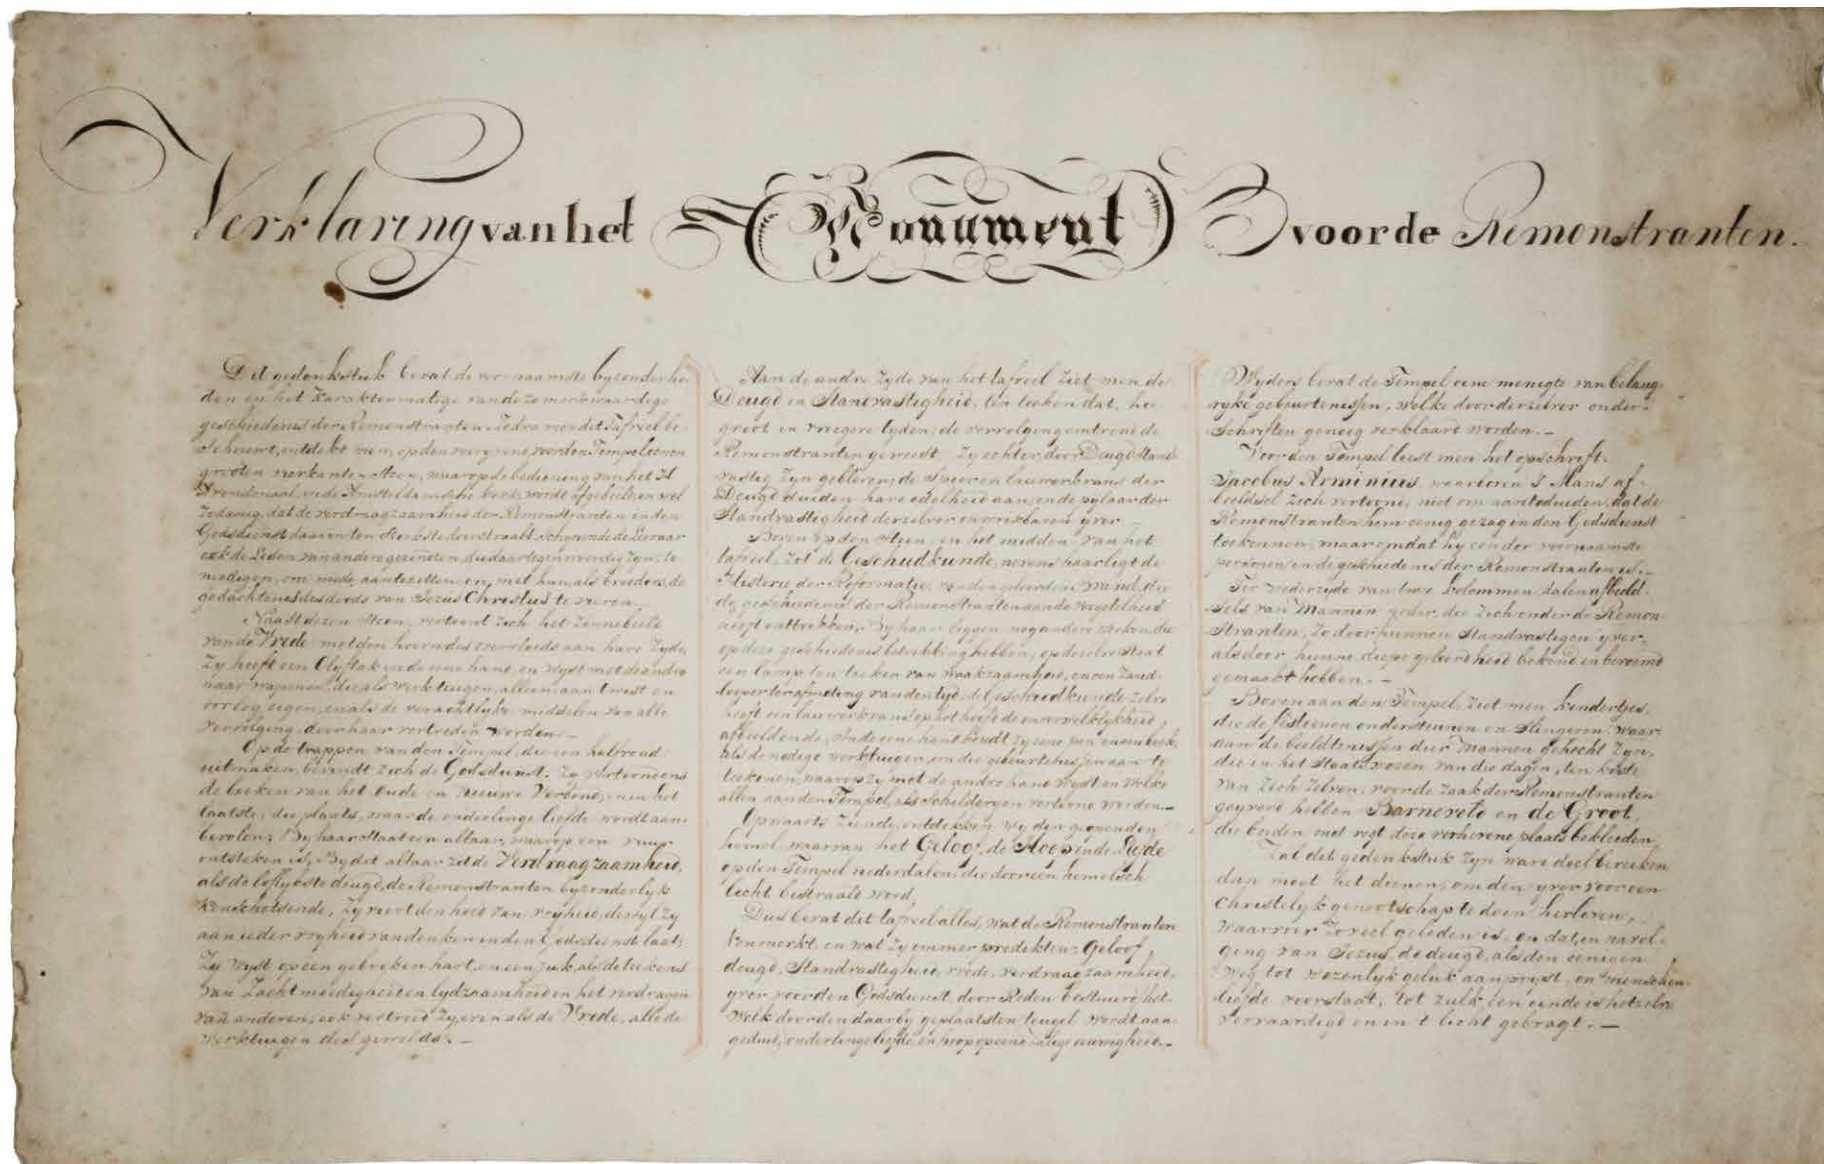 Verklaring van het Monument voor de Remonstranten.
Dit gedenkstuk bevat de voornaamste byzonderhe
den en het karaktermatige van deze merkwaardige
geschiedenis der Remonstranten. Ieder die dit Tafreel be
schouwt, ontdekt men, op den voorgrond van den Tempel eenen
grooten vierkanten steen, waarop de bediening van het H.
Avondmaal, in de Amsteldamsche kerk, wordt afgebeeld, en wel
zodanig, dat de verdraagzaamheid der Remonstranten in den
Godsdienst daar in ten sterkste doorstraalt, schynende de Leeraar
ook de Leden van andere gezinten, die daar tegenwoordig zyn, te
noodigen, om mede aan te zitten en, met hun, als broeders, de
gedachtenis des doods van Jezus Christus te vieren.
Naast dezen steen, vertoont zich het Zinnebeeld
van de Vrede met den hoorn des overvloeds aan hare zyde,
Zy heeft een Olyftak in de eene hand, en wyst met de andre
naar wapenen, die als werktuigen, alleen aan twist en
oorlog eigen, en als de verachtlyke middelen van alle
vervolging, door haar vertreden worden.—
Op de trappen van den Tempel, die een halfrond
uitmaken, bevindt zich de Godsdienst. Zy vertoont ons
de boeken van het Oude en Nieuwe Verbond, en in het
laatste, die plaats, waar de onderlinge liefde wordt aan
bevolen; By haar staat een altaar, waarop een vuur
ontstoken is, By dit altaar zit de Verdraagzaamheid,
als de loflykste deugd, de Remonstranten byzonderlyk
kenschetsende, zy voert den hoed van vryheid, dewyl zy
aan ieder vryheid van denken in den Godsdienst laat,
Zy wyst op een gebroken hart, en een juk, als de teekens
van zachtmoedigheid en lydzaamheid in het verdragen
van anderen, ook vertreet zy, even als de Vrede, alle de
werktuigen des gewelds.—
Aan de andre zyde van het tafreel ziet men de
Deugd en Standvastigheid, ten teeken dat, hoe
groot in vroegere tyden, de vervolging omtrend de
Remonstranten geweest zy echter, door Deugd stand
vastig zyn gebleven, de speer en lauwerkrans der
Deugd duiden hare edelheid aan, en de pylaar der
Standvastigheid derzelver onwrikbaren yver.—
Boven op den steen, en in het midden van het
tafreel, zit de Geschiedkunde, nevens haar ligt de
Historie der Reformatie, van den geleerden Brand, die
de geschiedenis der Remonstranten aan de vergetelheid
heeft onttrokken. By haar liggen nog andere boeken, die
op deze geschiedenis betrekking hebben, op dezelve staat
een lamp ten teeken van waakzaamheid, en een Zand-
looper ter afmeting van den tyd, de Geschiedkunde zelve
heeft een lauwerkrans op het hoofd de onverwelklykheid
afbeeldende, In de eene hand houdt zy eene pen en een boek,
als de nodige werktuigen, om die gebeurtenissen aan te
teekenen, waarop zy met de andre hand wyst, en welke
allen aan den Tempel, als schilderyen vertoond worden.—
Opwaarts ziende, ontdekken wy den geopenden
hemel waarvan het Geloof, de Hoop en de Liefde
op den Tempel nederdalen, die door een hemelsch
licht bestraald word,
Dus bevat dit tafreel alles, wat de Remonstranten
kenmerkt, en wat zy immer predikten: Geloof,
deugd, Standvastigheid, vrede, verdraagzaamheid,
yver voor den Godsdienst, door Reden bestuurd, het
welk door den daarby geplaatsten teugel wordt aan-
geduid, onderlinge liefde, en hoop op eene zalige eeuwigheid.—
Wyders bevat de Tempel eene menigte van belang-
ryke gebeurtenissen, welke door derzelver onder-
schriften genoeg verklaard worden.—
Voor den Tempel leest men het opschrift:
Jacobus Arminius, waarboven 's Mans af-
beeldsel zich vertoont, niet om aan te duiden, dat de
Remonstranten hem eenig gezag in den Godsdienst
toekennen, maar omdat hy een der voornaamste
personen in de geschiedenis der Remonstranten is.—
Ter wederzyde van twee kolommen, dalen afbeeld-
sels van Mannen neder, die zich onder de Remon-
stranten, zo door hunnen standvastigen yver,
als door hunne diepe geleerdheid bekend en beroemd
gemaakt hebben.—
Boven aan den Tempel, ziet men kindertjes,
die de festoenen ondersteunen en slingeren, waar-
aan de beeldtenissen dier Mannen gehecht zyn,
die in het Staatswezen van die dagen, ten koste
van zich zelven, voor de zaak der Remonstranten
geyverd hebben Barneveld en de Groot,
die beiden met regt deze verhevene plaats bekleeden.
Zal dit gedenkstuk zyn ware doel bereiken
dan moet het dienen, om den yver voor een
Christelyk genootschap te doen herleven,
waarvoor zo veel geleden is, en dat, in navol-
ging van Jezus, de deugd, als den eenigen
weg tot wezenlyk geluk aan pryst, en menschen-
liefde voorstaat, tot zulk een einde is hetzelve
vervaardigd en in 't licht gebragt.—